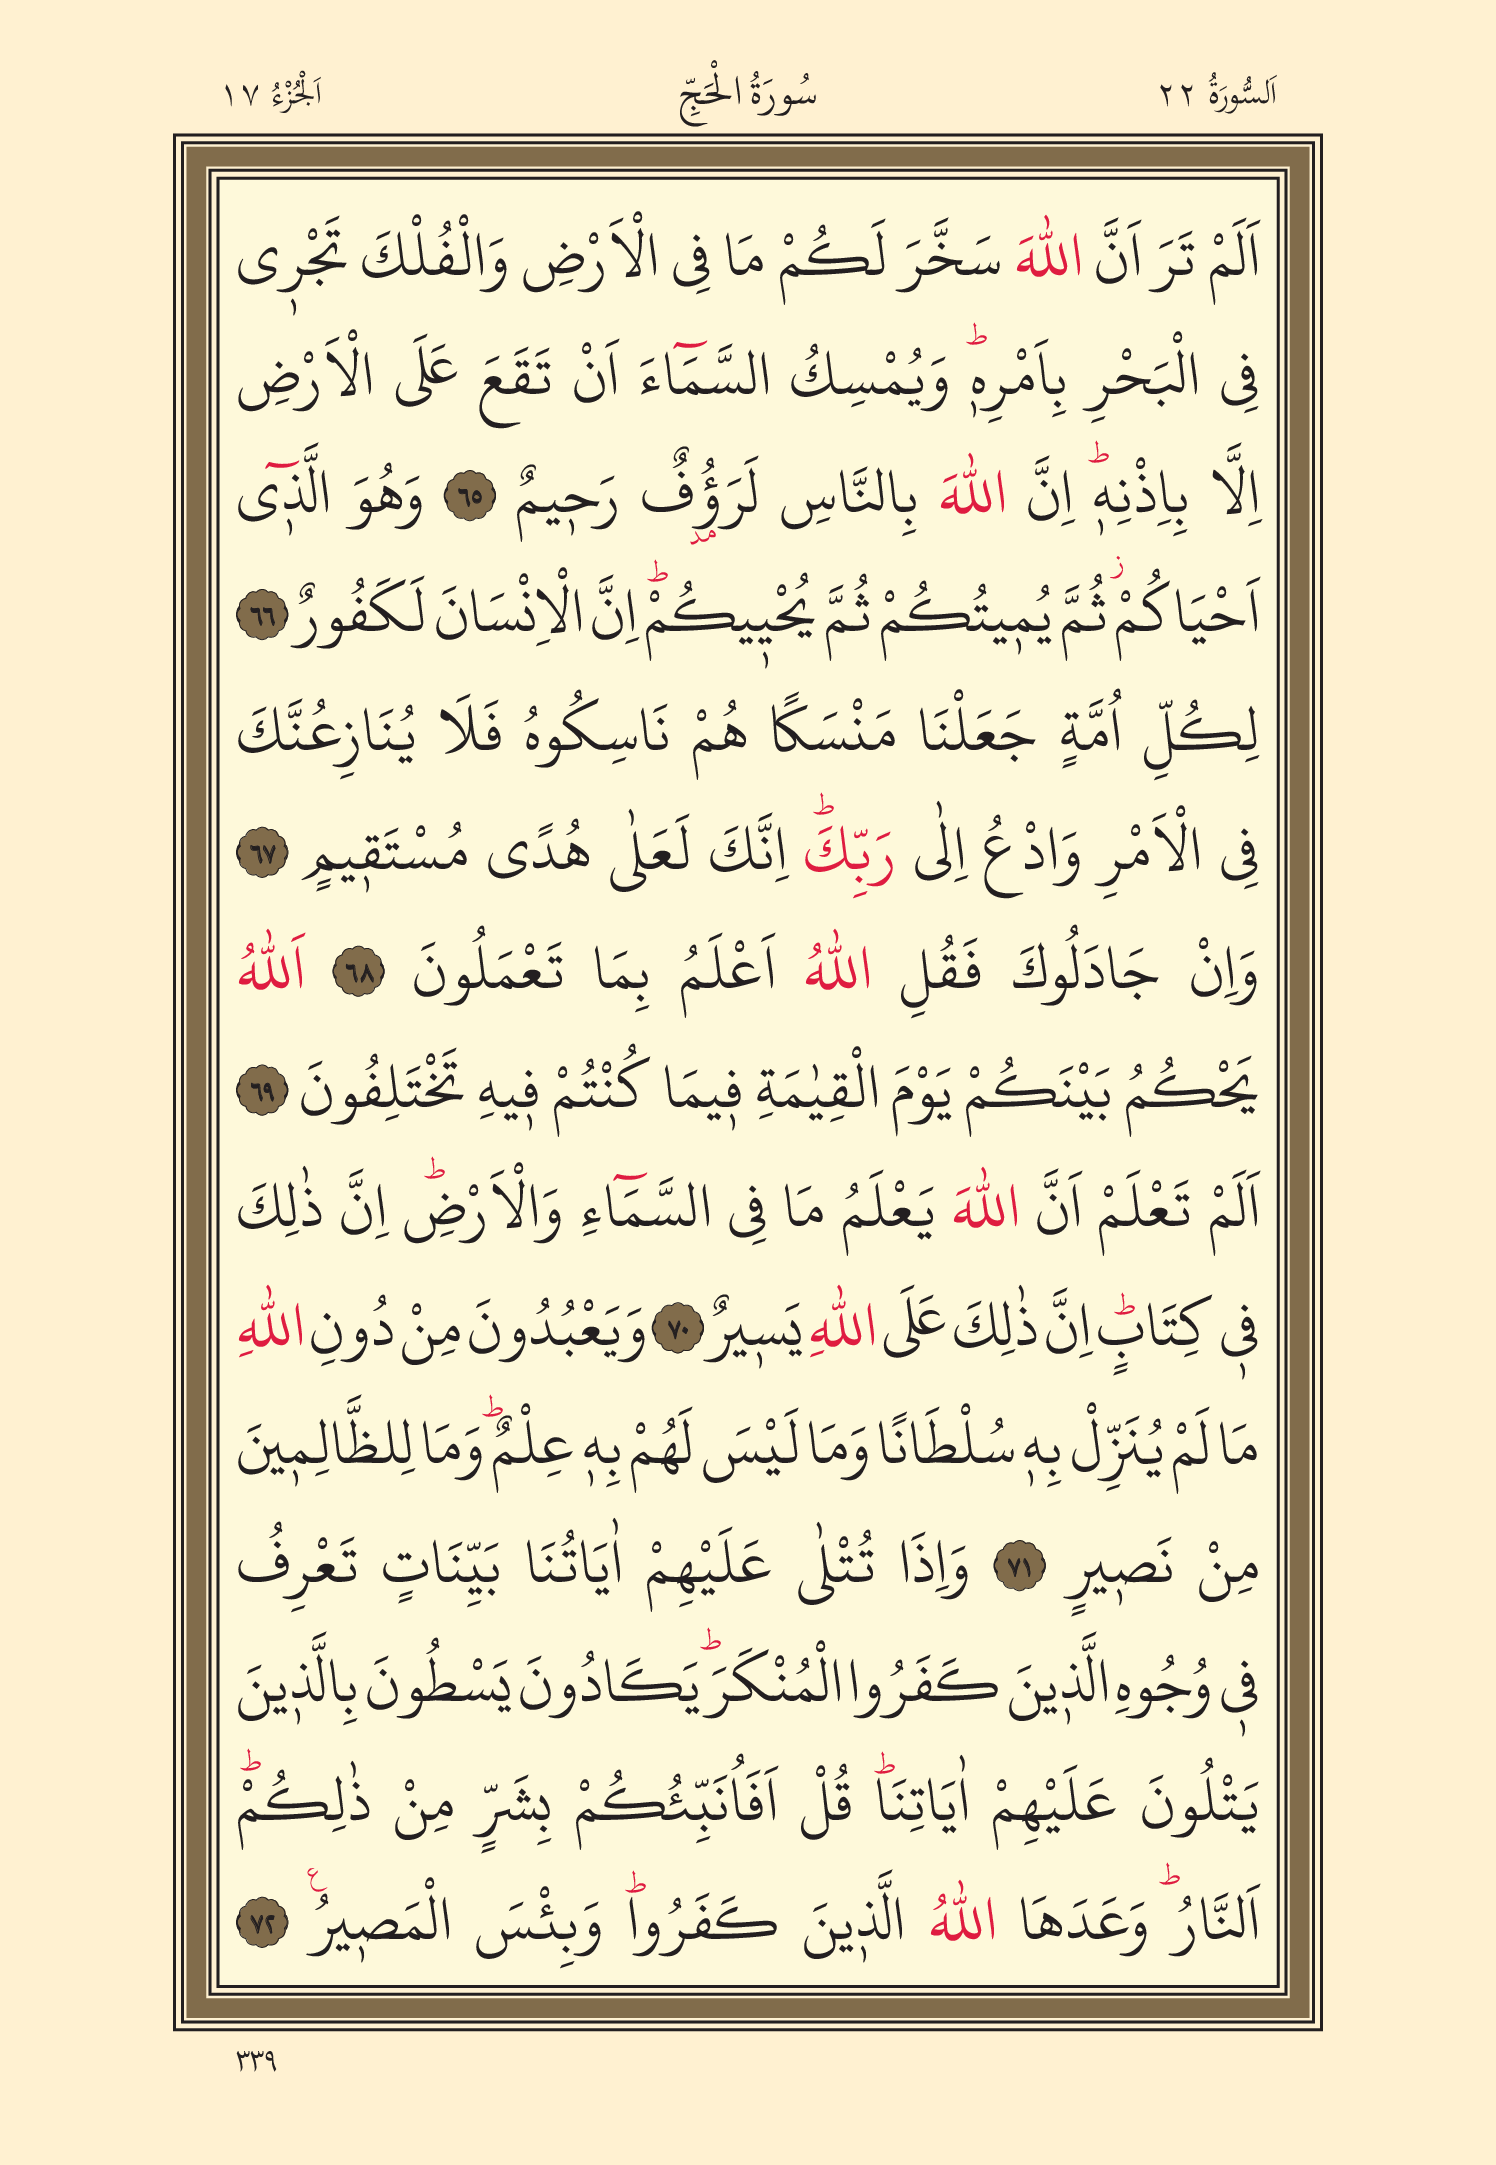 اَلسُّورَةُ ٢٢ سُورَةُ الْحَجِّ اَلْجُزْءُ ١٧
اَلَمْ تَرَ اَنَّ اللّٰهَ سَخَّرَ لَكُمْ مَا فِى الْاَرْضِ وَالْفُلْكَ تَجْرٖى
فِى الْبَحْرِ بِاَمْرِهٖؕ وَيُمْسِكُ السَّمَٓاءَ اَنْ تَقَعَ عَلَى الْاَرْضِ
اِلَّا بِاِذْنِهٖؕ اِنَّ اللّٰهَ بِالنَّاسِ لَرَؤُ۫فٌ رَحٖيمٌ ﴿٦٥﴾ وَهُوَ الَّذٖٓى
اَحْيَاكُمْؗ ثُمَّ يُمٖيتُكُمْ ثُمَّ يُحْيٖيكُمْؕ اِنَّ الْاِنْسَانَ لَكَفُورٌ ﴿٦٦﴾
لِكُلِّ اُمَّةٍ جَعَلْنَا مَنْسَكًا هُمْ نَاسِكُوهُ فَلَا يُنَازِعُنَّكَ
فِى الْاَمْرِ وَادْعُ اِلٰى رَبِّكَؕ اِنَّكَ لَعَلٰى هُدًى مُسْتَقٖيمٍ ﴿٦٧﴾
وَاِنْ جَادَلُوكَ فَقُلِ اللّٰهُ اَعْلَمُ بِمَا تَعْمَلُونَ ﴿٦٨﴾ اَللّٰهُ
يَحْكُمُ بَيْنَكُمْ يَوْمَ الْقِيٰمَةِ فٖيمَا كُنْتُمْ فٖيهِ تَخْتَلِفُونَ ﴿٦٩﴾
اَلَمْ تَعْلَمْ اَنَّ اللّٰهَ يَعْلَمُ مَا فِى السَّمَٓاءِ وَالْاَرْضِؕ اِنَّ ذٰلِكَ
فٖى كِتَابٍؕ اِنَّ ذٰلِكَ عَلَى اللّٰهِ يَسٖيرٌ ﴿٧٠﴾ وَيَعْبُدُونَ مِنْ دُونِ اللّٰهِ
مَا لَمْ يُنَزِّلْ بِهٖ سُلْطَانًا وَمَا لَيْسَ لَهُمْ بِهٖ عِلْمٌؕ وَمَا لِلظَّالِمٖينَ
مِنْ نَصٖيرٍ ﴿٧١﴾ وَاِذَا تُتْلٰى عَلَيْهِمْ اٰيَاتُنَا بَيِّنَاتٍ تَعْرِفُ
فٖى وُجُوهِ الَّذٖينَ كَفَرُوا الْمُنْكَرَؕ يَكَادُونَ يَسْطُونَ بِالَّذٖينَ
يَتْلُونَ عَلَيْهِمْ اٰيَاتِنَاؕ قُلْ اَفَاُنَبِّئُكُمْ بِشَرٍّ مِنْ ذٰلِكُمْؕ
اَلنَّارُؕ وَعَدَهَا اللّٰهُ الَّذٖينَ كَفَرُواؕ وَبِئْسَ الْمَصٖيرُࣖ ﴿٧٢﴾
٣٣٩